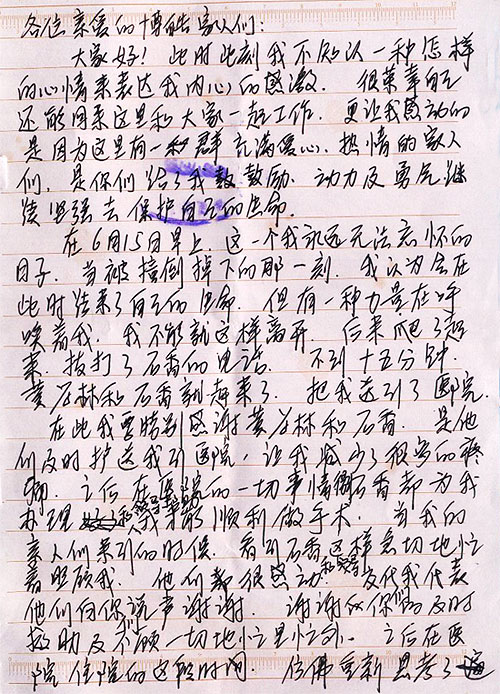 各位亲爱的博皓家人们:
大家好! 此时此刻我不知以一种怎样
的心情来表达我内心的感激. 很荣幸自己
还能回来这里和大家一起工作. 更让我感动的
是因为这里有一群充满爱心、热情的家人
们. 是你们给了我鼓励. 动力及勇气继
续坚强去保护自己的生命.
在6月15日早上. 这一个我永远无法忘怀的
日子. 当被撞倒掉下的那一刻. 我认为会在
此时结束了自己的生命. 但有一种力量在呼
唤着我. 我不能就这样离开. 后来爬了起
来. 拨打了石香的电话. 不到十五分钟.
黄谷林和石香就赶来了. 把我送到了医院.
在此我要特别感谢黄谷林和石香. 是他
们及时护送我到医院, 让我减少了很多的疼
痛. 之后在医院的一切事情石香都为我
办理 和我能顺利做手术. 当我的
亲人们来到的时候. 看到石香这样急切地忙
着照顾我. 他们都很感动 交代我代表
他们向你说声谢谢. 谢谢你们的及时
救助及不顾一切地忙里忙外. 之后在医
院住院的这段时间. 仿佛重新思考了